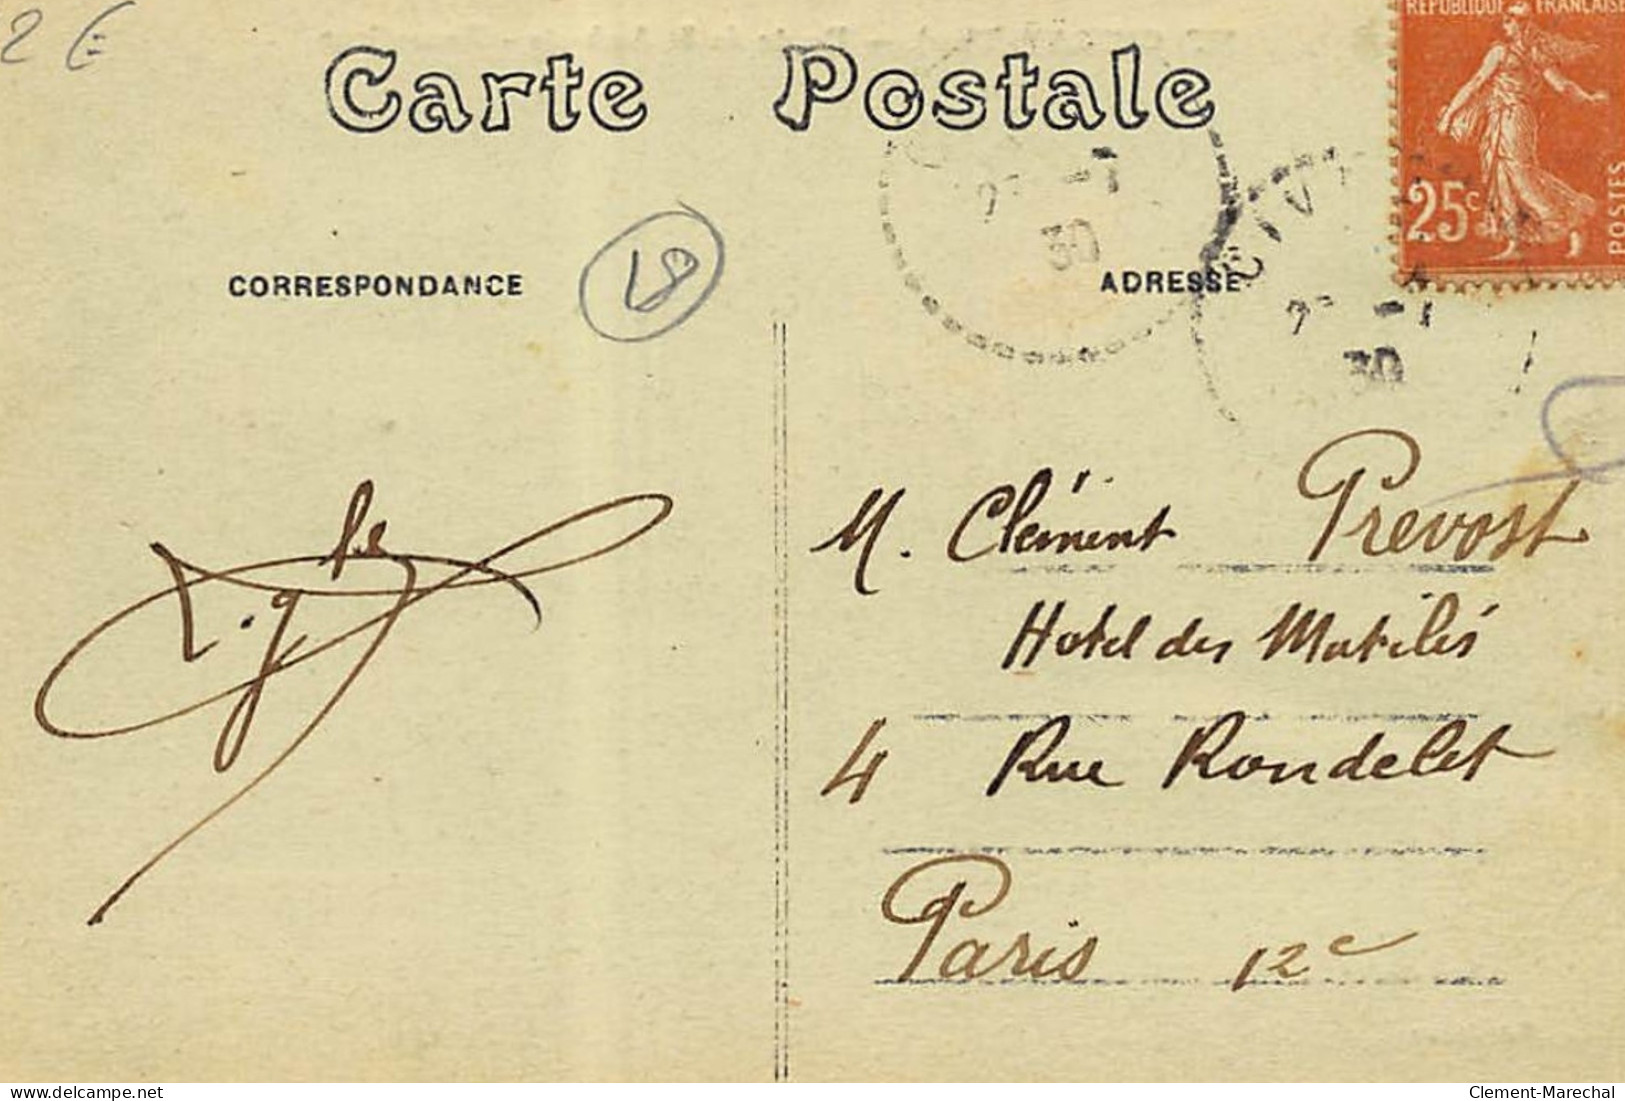 2 €
Carte Postale
REPUBLIQUE FRANÇAISE
25c
POSTES
30
30
CORRESPONDANCE
ADRESSE
M. Clément Prevost
Hotel des Mutilés
4 Rue Rondelet
Paris 12e
delcampe.net
Clement-Marechal